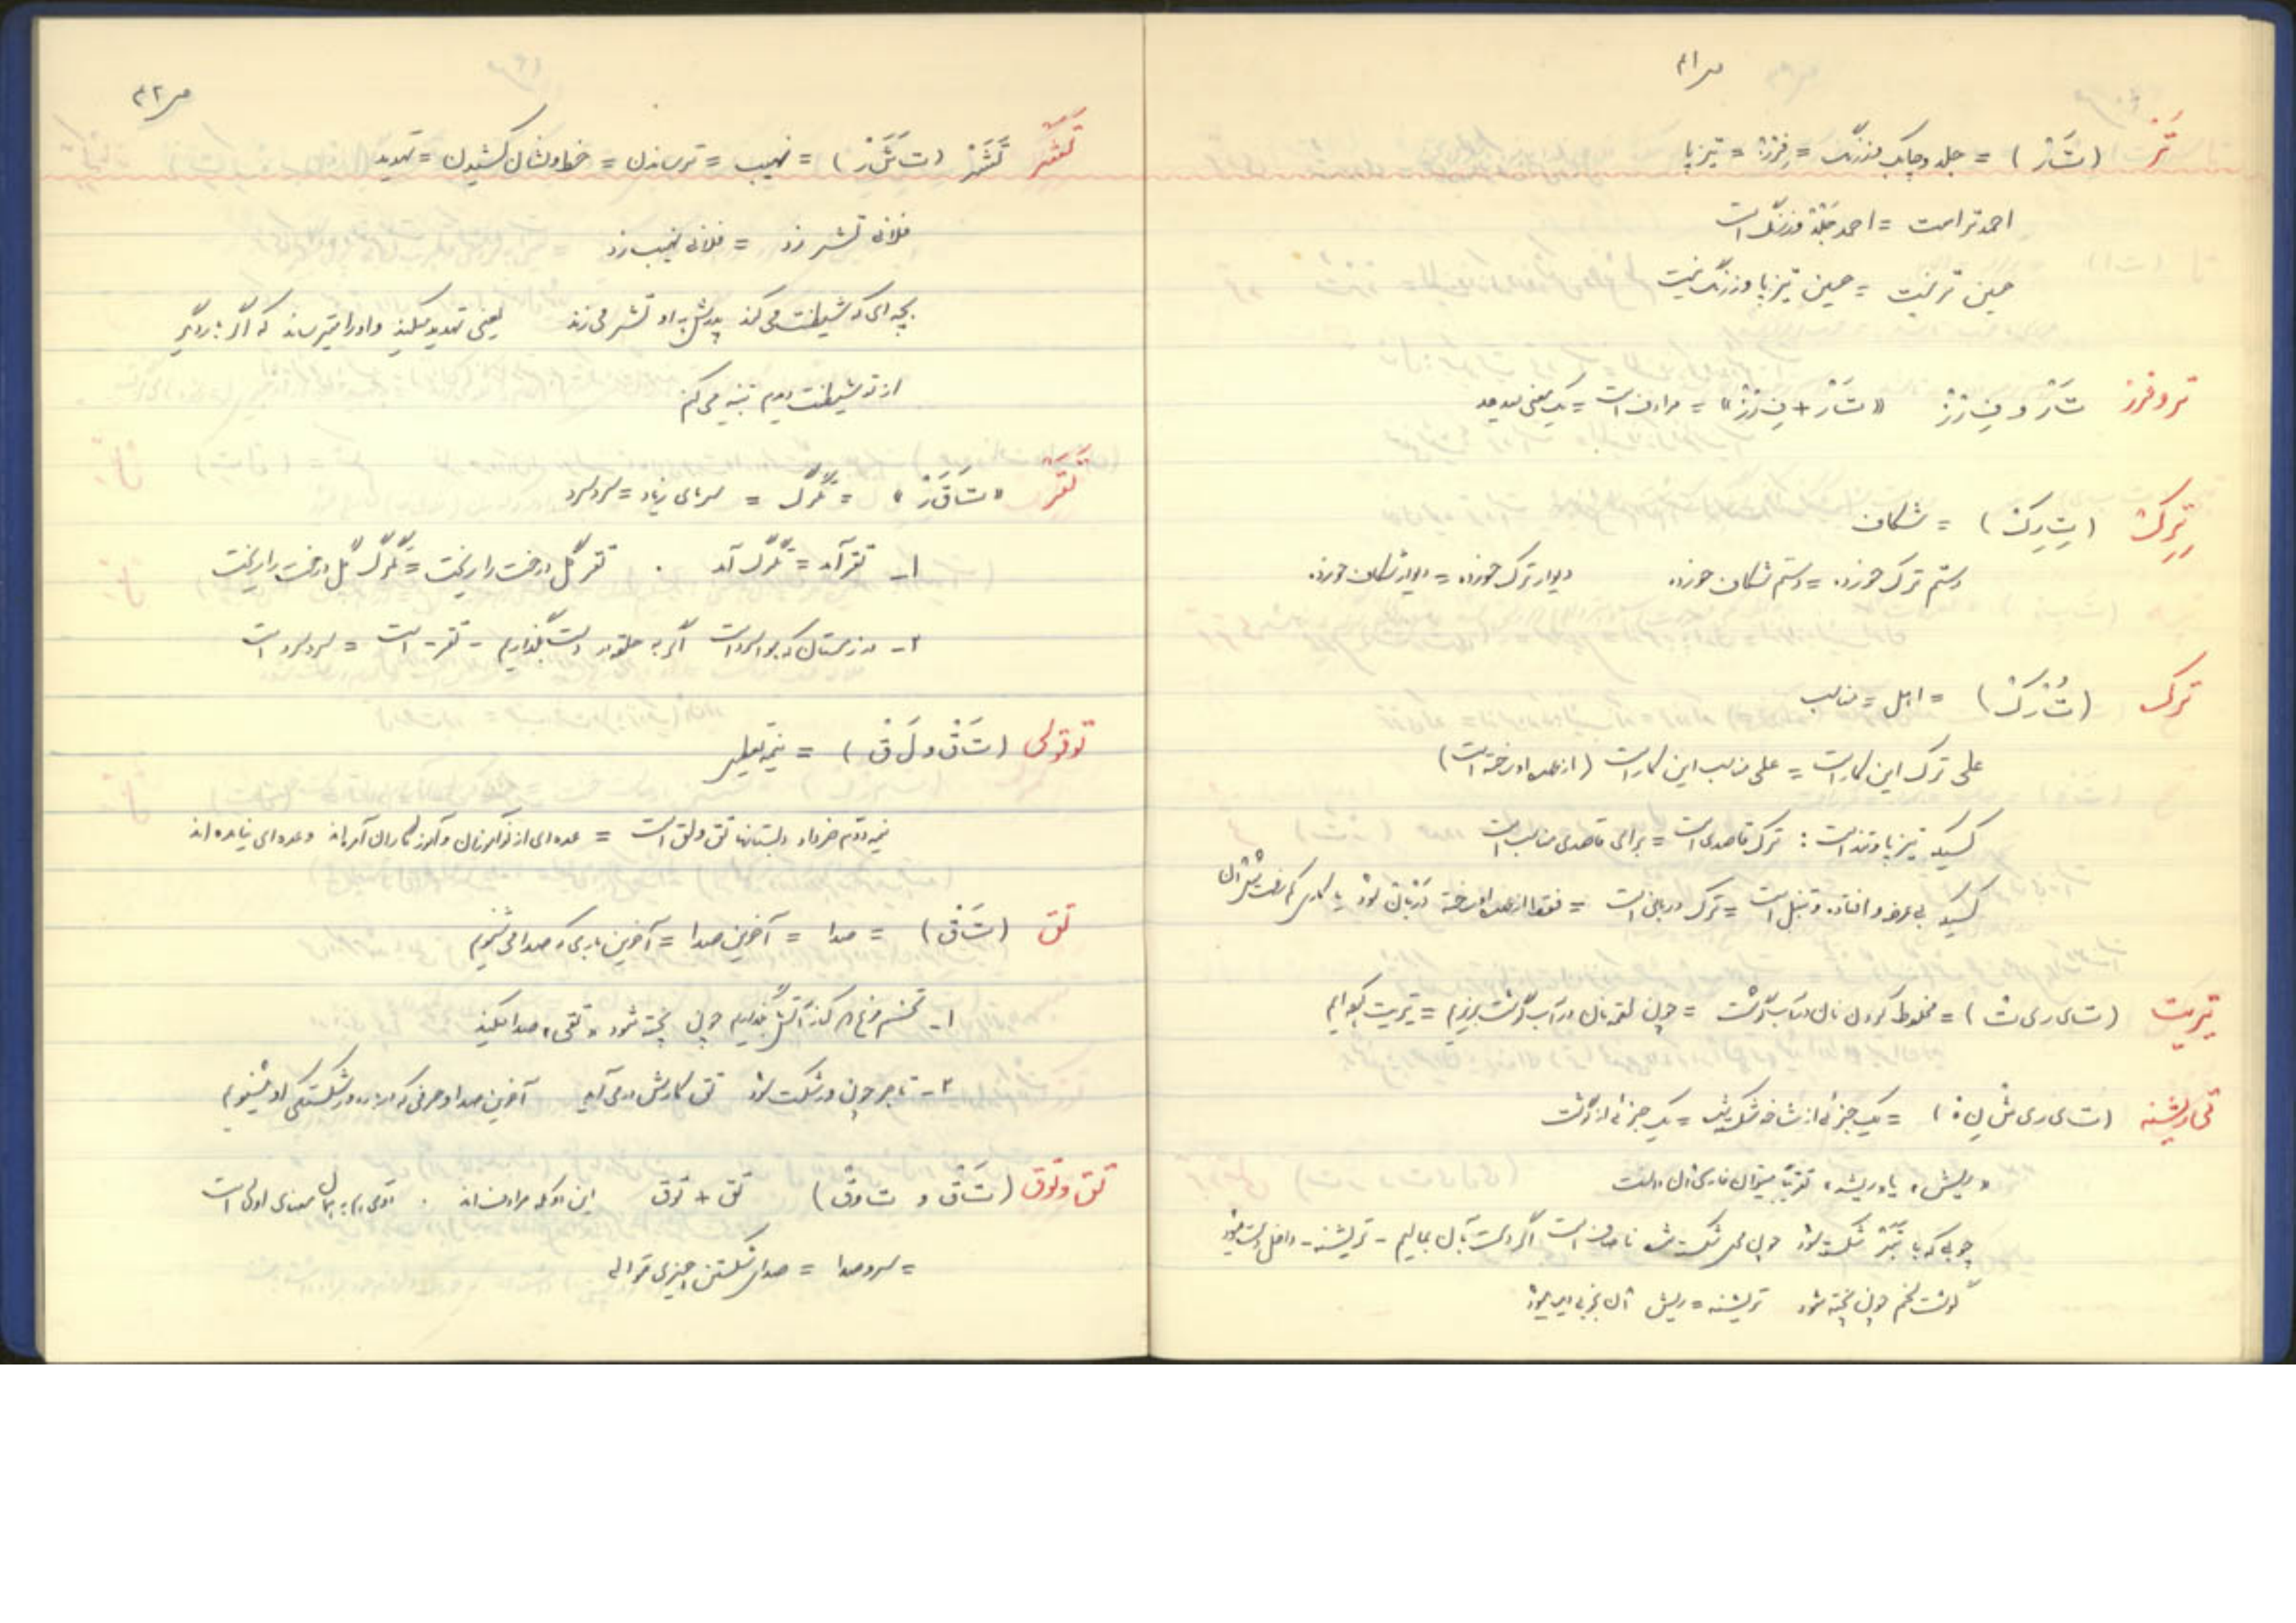 ص ۴۱
تَر (تَ‌رْ) = جلد و چابک و زرنگ = فِرْزْ = تیزپا
احمد تر است = احمد جَلْدْ و زرنگ است
حسین تر نیست = حسین تیزپا و زرنگ نیست
تر و فرز تَ‌رْ و فِ رْزْ «تَ‌رْ + فِ رْزْ» = مرادف است = یک معنی میدهد
تِرِک (تِ رِکْ) = شکاف
دستم ترک خورده = دستم شکاف خورده دیوار ترک خورده = دیوار شکاف خورده
ترک (تُ‌رْکْ) = اهل = مناسب
علی ترک این کار است = علی مناسب این کار است (از عهده او ساخته است)
کسیکه تیزپا و تند است : ترک قاصدی است = برای قاصدی مناسب است
کسیکه بی‌عرضه و افتاده و تنبل است = ترک دربانی است = فقط از عهده او ساخته دربان شود یا کاری که زحمتش
تیریت (ت ی ر ی ت) = مخلوط کردن نان در آب گوشت = چون لقمه نان در آب گوشت بریزیم = تیریت گوئیم
تی‌ریشنه (ت ی ر ی ش نِ ه) = یک جزئی از شاخه شکسته = یک جزئی از گوشت
«ریش» یا «ریشه» تقریباً میتوان فارسی آن دانست
چوبی که با تبر شکسته شود چون محل شکسته شده ناصاف است اگر دست به آن بمالیم - تریشنه - داخل دست میشود
گوشت لخم چون پخته شود تریشنه = ریش آن بخوبی دیده میشود
ص ۴۲
تَشَر تَشَرْ (ت شَ رْ) = نهیب = ترساندن = خط و نشان کشیدن = تهدید
فلانی تشر زد = فلانی نهیب زد
بچه‌ای که شیطنت می‌کند پدرش به او تشر می‌زند یعنی تهدید میکند و او را میترساند که اگر بار دیگر
از تو شیطنت دیدم تنبیه می‌کنم
تَقَر «تَ قَ رْ» = تگرگ = سرمای زیاد = سرد سرد
۱- تقر آمد = تگرگ آمد . تقر گل درخت را ریخت = تگرگ گل درخت را ریخت
۲- در زمستان که هوا سرد است اگر به حلقه در دست بگذاریم - تقر - است = سرد سرد است
تق و لق (تَ‌قْ و لَ ق) = نیمه تعطیل
نیمه دوم خرداد دبستانها تق و لق است = عده‌ای از نوآموزان و آموزگاران آمده‌اند و عده‌ای نیامده‌اند
تق (تَ‌قْ) = صدا = آخرین صدا = آخرین باری که صدا می‌شنویم
۱- تخم مرغ را کنار آتش بگذاریم چون پخته شود «تقی» صدا میکند
۲- تاجر چون ورشکست شود تق کارش در می‌آید آخرین صدا و حرفی که درباره ورشکستگی او میشنویم
تق و توق (تَ‌قْ و ت وقْ) تق + توق این دو کلمه مرادف‌اند . دومی به همان معنای اولی است
= سر و صدا = صدای شکستن چیزی متوالی